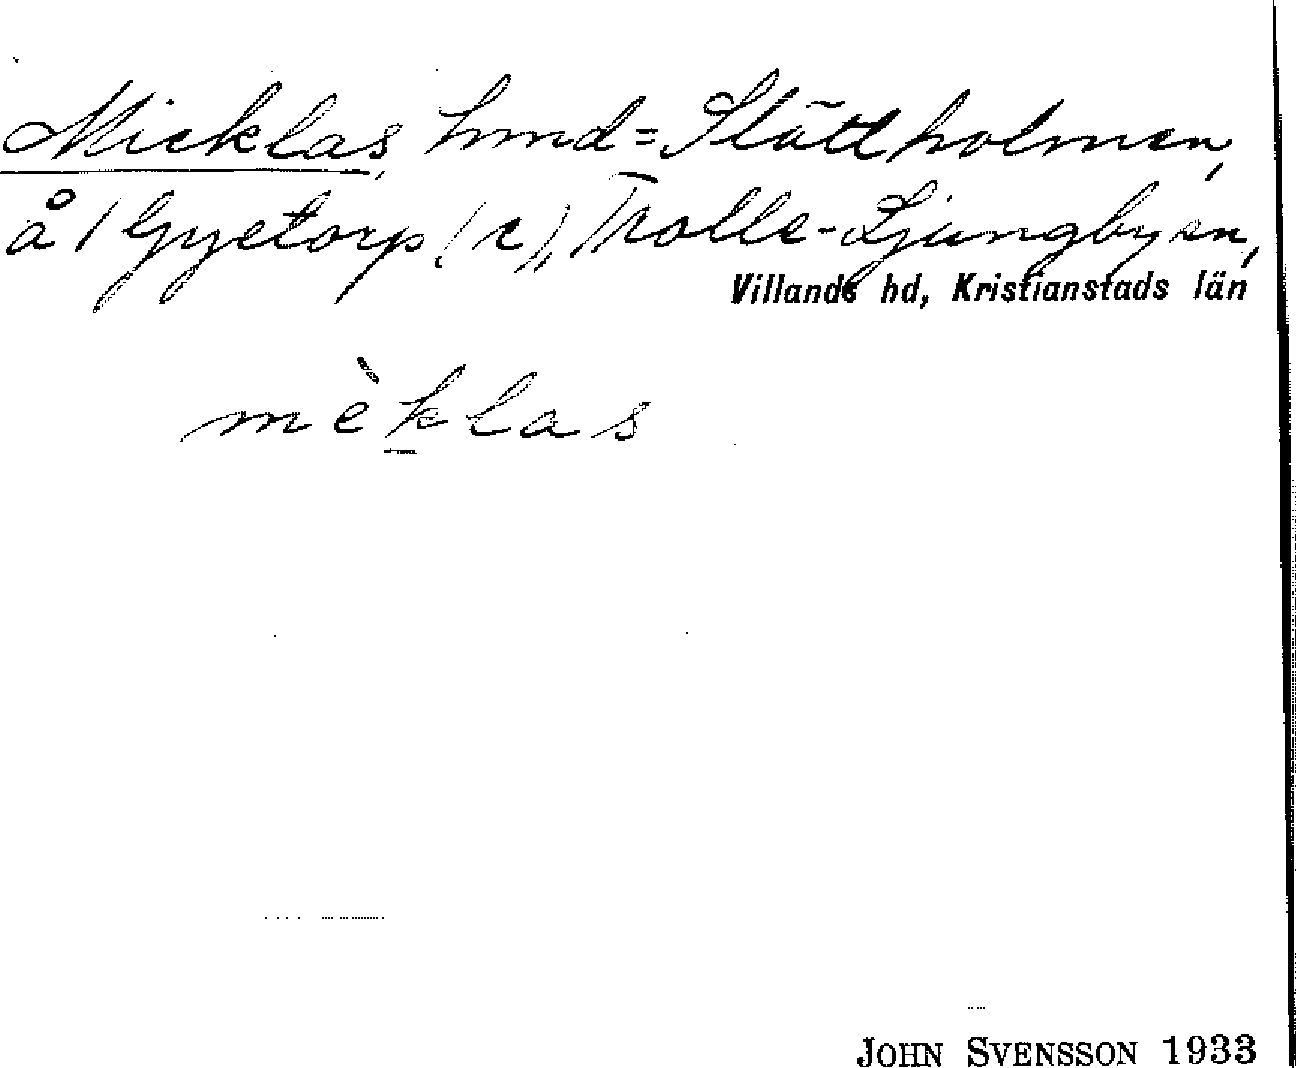 Micklas, hmd = Slättholmen,
å 1 Gyetorp (c), Trolle-Ljungby sn,
Villands hd, Kristianstads län
mèklas
JOHN SVENSSON 1933